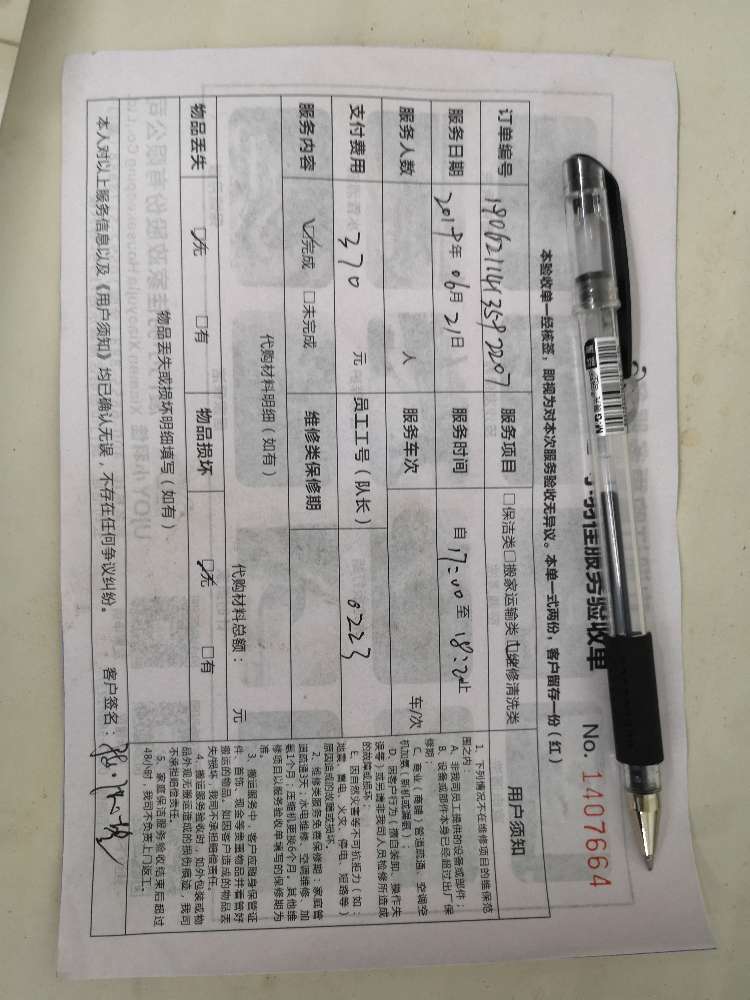 居服务验收单 No. 1407664
本验收单一经核签，即视为对本次服务验收无异议。本单一式两份，客户留存一份（红）
订单编号 服务项目 □保洁类□搬家运输类☑维修清洗类 用户须知
服务日期 2019年06月21日 服务时间 自17:00至18:20止
服务人数 人 服务车次 车/次
支付费用 370 元 员工工号（队长） 0223
服务内容 ☑完成 □未完成 维修类保修期
代购材料明细（如有）
代购材料总额： 元
物品丢失 ☑无 □有 物品损坏 ☑无 □有
物品丢失或损坏明细填写（如有）
本人对以上服务信息以及《用户须知》均已确认无误，不存在任何争议纠纷。 客户签名：
1、下列情况不在维修项目的维保范
围之内：
A、非我司员工提供的设备或部件；
B、设备或部件本身已经超过出厂保
修期；
C、商业（商铺）管道疏通、空调空
机加氨、新机或漏氨）；
D、因客户行为（擅自装卸、操作失
误等）或另请非我司人员检修所造成
的故障或损坏；
E、因自然灾害等不可抗拒力（如：
地震、雷电、火灾、停电、短路等）
原因造成的故障或损坏。
2、维修类服务免费保修期：家庭管
道疏通3天；水电维修、空调维修、加
氨1个月；压缩机更换6个月，其他维
修项目以服务验收单填写的保修期为
准。
3、搬运服务中，客户应随身保管证
件、首饰、现金等贵重物品并看管好
搬运的物品，如因客户造成的物品丢
失/损坏，我司不承担赔偿责任。
4、搬运服务验收时，如外包装或物
品外观无搬运造成的损伤痕迹，我司
不承担赔偿责任。
5、家庭保洁服务验收结束后超过
48小时，我司不负责上门返工。